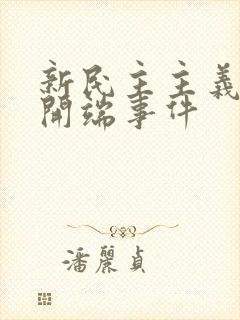 新民主主義
開端事件
潘麗貞